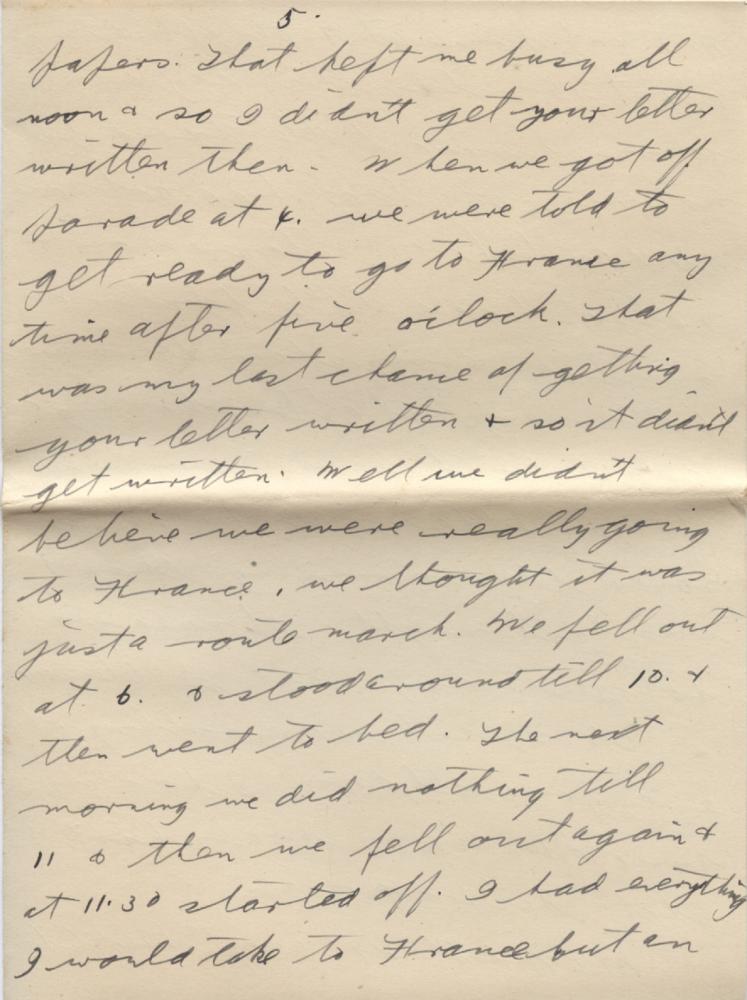 5.
papers. That kept me busy all
noon & so I didn't get your letter
written then. When we got off
parade at 4. we were told to
get ready to go to France any
time after five o'clock. That
was my last chance of getting
your letter written & so it didn't
get written. Well we didn't
believe we were really going
to France, we thought it was
just a route march. We fell out
at 6. & stood around till 10. &
then went to bed. The next
morning we did nothing till
11 & then we fell out again &
at 11.30 started off. I had everything
I would take to France but an